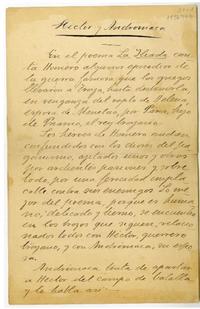 Hector y Andrómaca
En el poema La Iliada can-
ta Homero algunos episodios de
la guerra famosa que los griegos
llevaron a Troya, hasta destruirla,
en venganza del rapto de Helena,
esposa de Menelao, por Paris, hijo
de Príamo, el rey troyano.
Los heroes de Homero andan
confundidos con los dioses del pa-
ganismo, agitados unos y otros
por ardientes pasiones y sobre
todo por una crueldad impla-
cable contra sus enemigos. Lo me-
jor del poema, porque es huma-
no, delicado y tierno, se encuentra
en los trozos que siguen, relacio-
nados todos con Héctor, guerrero
troyano, y con Andrómaca, su espo-
sa.
Andrómaca trata de apartar
a Hector del campo de batalla
y le habla así: